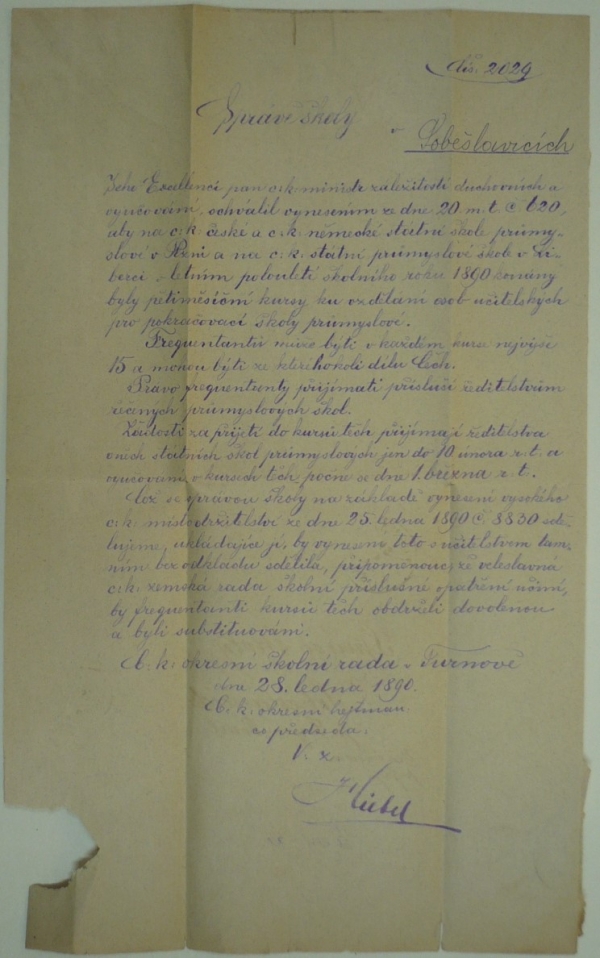 Čís. 2029
Správě školy
v
Soběslavicích
Jeho Excellencí pan c. k. ministr záležitostí duchovních a
vyučování, schválil vynesením ze dne 20. m. t. č. 620,
aby na c. k. české a c. k. německé státní škole průmy-
slové v Plzni a na c. k. státní průmyslové škole v Li-
berci v letním pololetí školního roku 1890 konány
byly pětiměsíční kursy ku vzdělání osob učitelských
pro pokračovací školy průmyslové.
Frequentantů může býti v každém kurse nejvýše
15 a mohou býti ze kteréhokoli dílu Čech.
Právo frequentanty přijímati přísluší ředitelstvům
řečených průmyslových škol.
Žádosti za přijetí do kursů těch přijímají ředitelstva
oněch státních škol průmyslových jen do 10 února r. t. a
vyučování v kursech těch počne se dne 1. března r. t.
Což se správou školy na základě vynesení vysokého
c. k. místodržitelství ze dne 25. ledna 1890 č. 8830 sdě-
lujeme, ukládajíce jí, by vynesení toto s učitelstvem tam-
ním bez odkladu sdělila, připomenouc, že veleslavná
c. k. zemská rada školní příslušné opatření učiní,
by frequentanti kursů těch obdrželi dovolenou
a byli substituováni.
C. k. okresní školní rada v Turnově
dne 28. ledna 1890.
C. k. okresní hejtman
co předseda.
V. z.